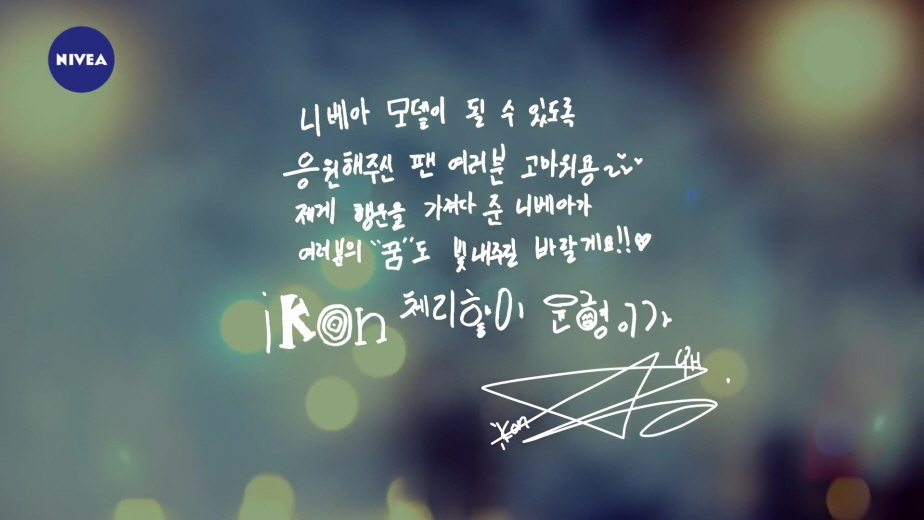 NIVEA
니베아 모델이 될 수 있도록
응원해주신 팬 여러분 고마워용~
제게 행운을 가져다 준 니베아가
여러분의 "꿈"도 빛내주길 바랄게요!!♥
iKon 체리핥이 윤형이가
YH
iKon